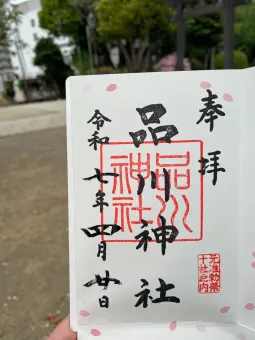 奉拝
品川神社
令和七年四月廿日
品川神社
元准勅祭
十社之内